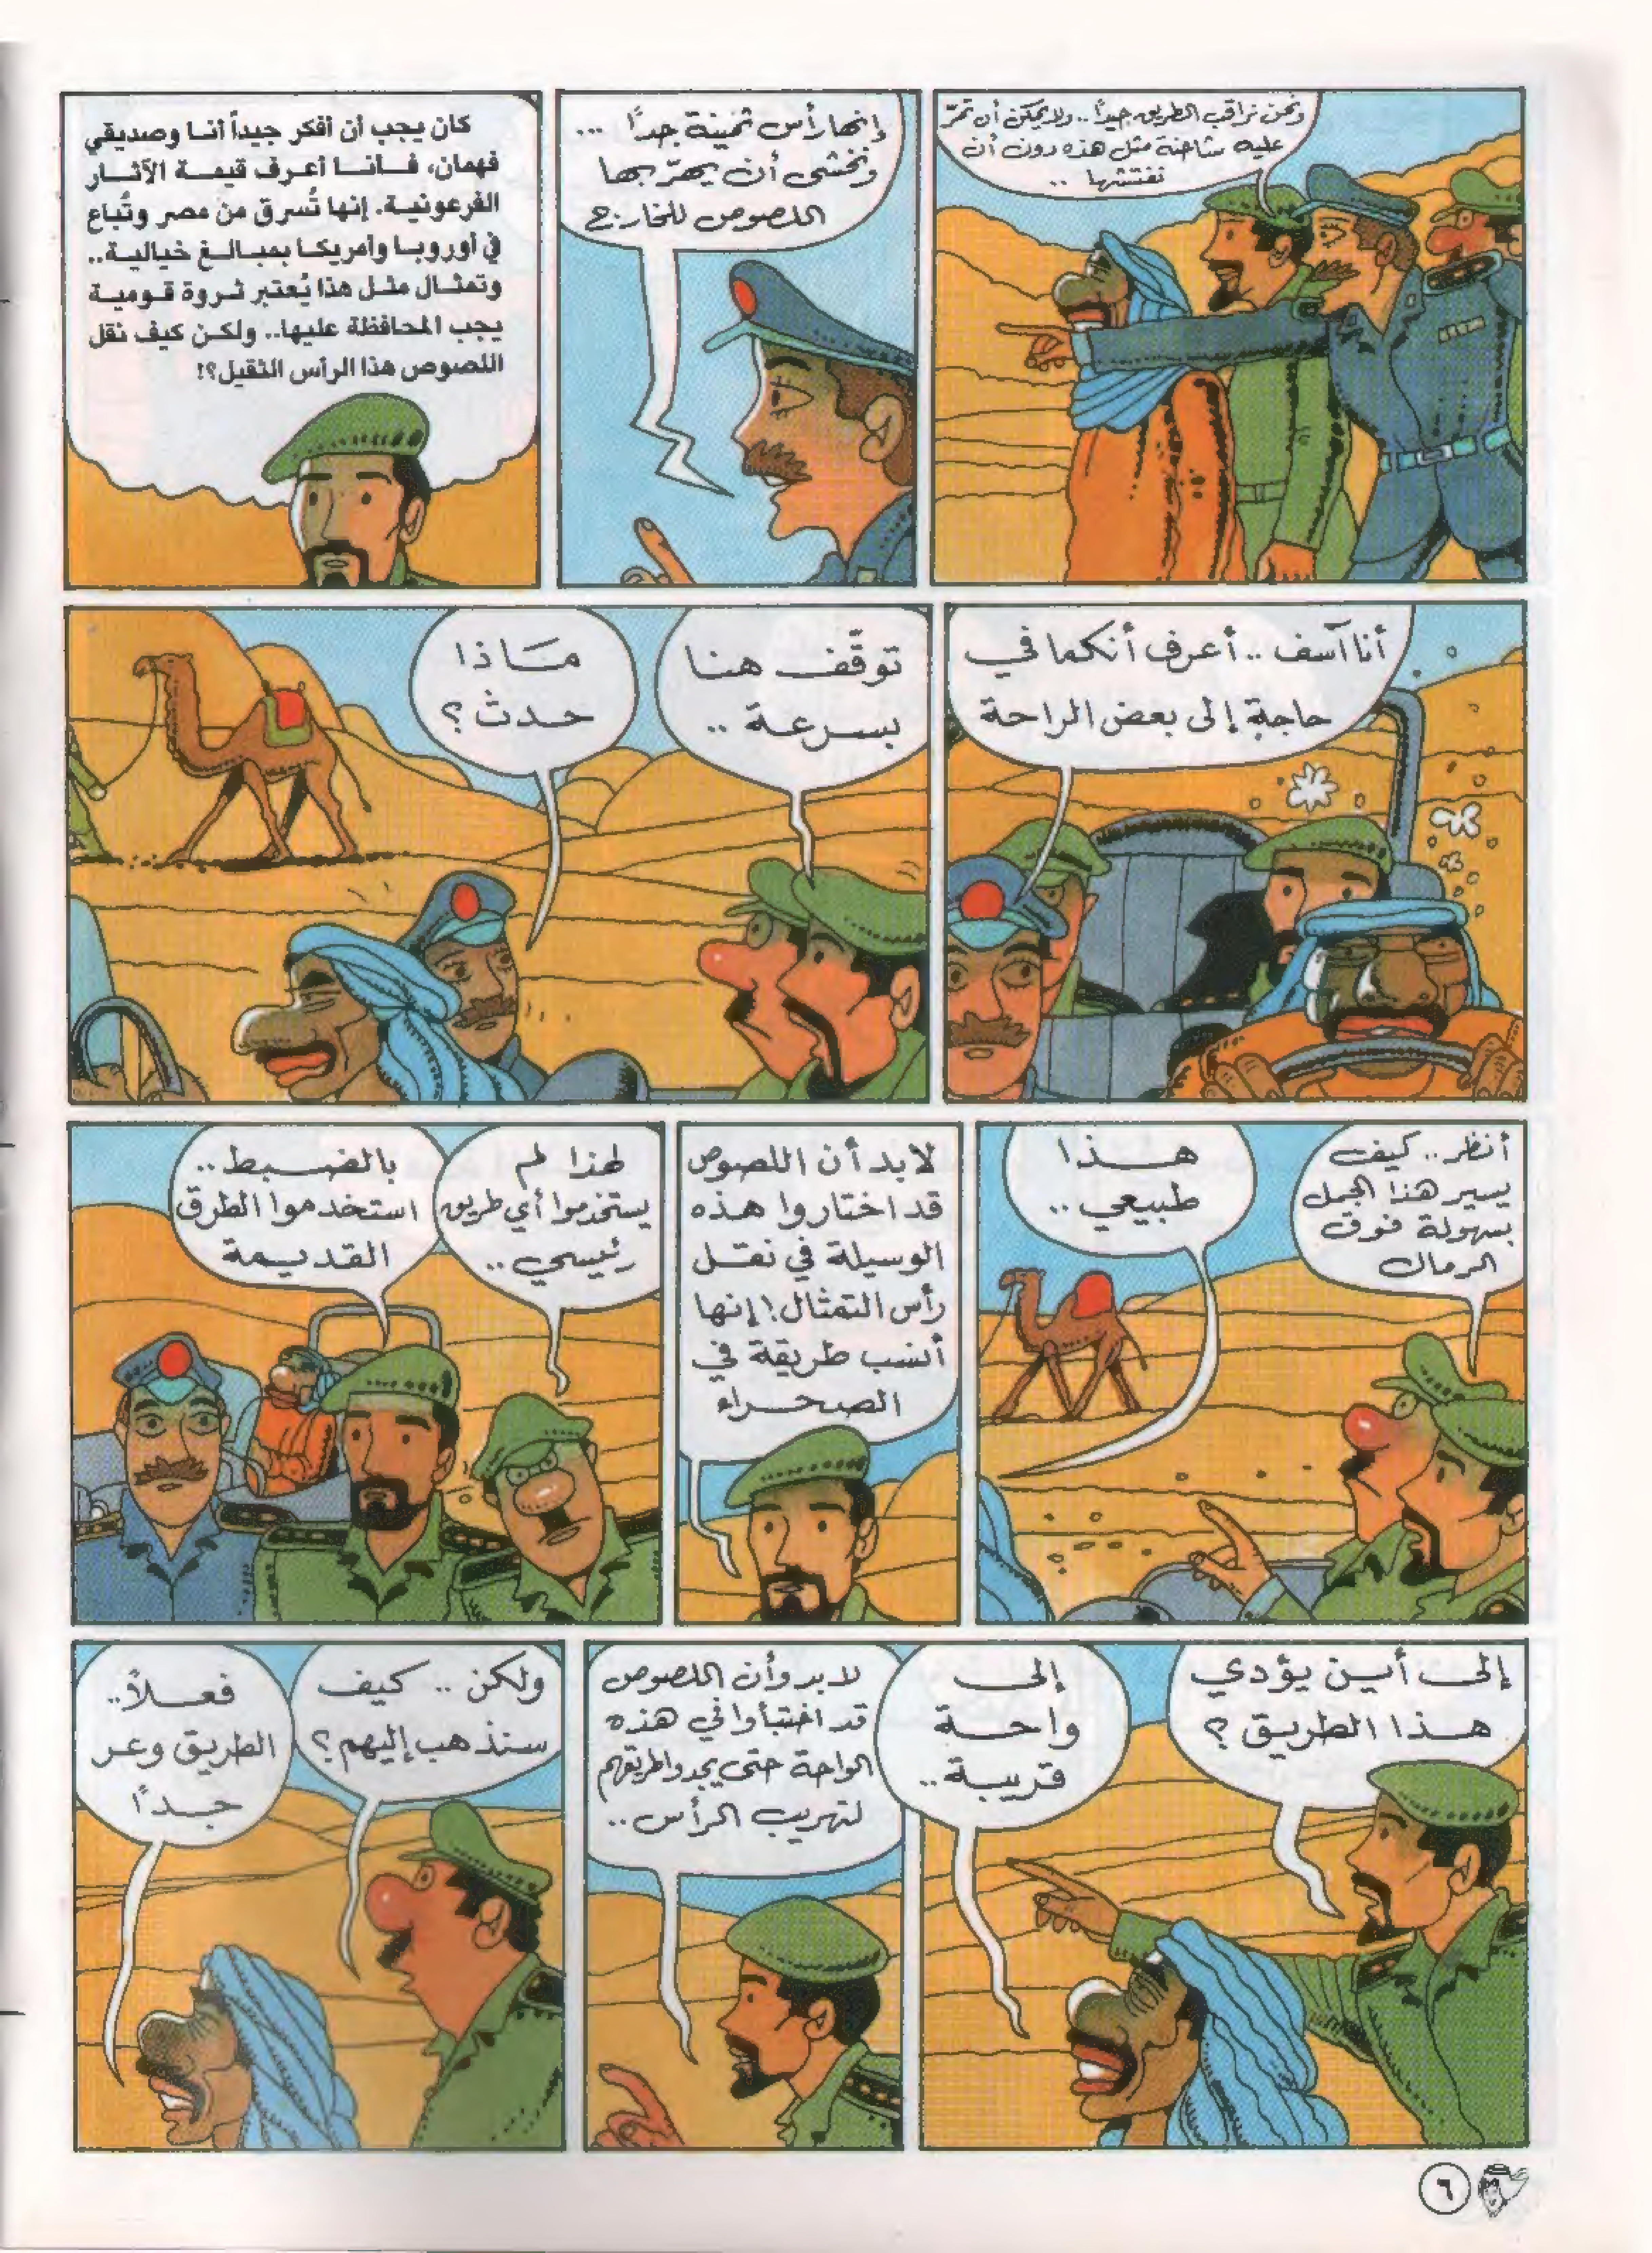 ونحن نراقب الطريق جيدًا.. ولا يمكن أن تمرّ
عليه شاحنة مثل هذه دون أن
نفتشها ..
إنها رأس ثمينة جدًا ...
ونخشى أن يهرّبها
اللصوص للخارج
كان يجب أن أفكر جيداً أنا وصديقي
فهمان، فأنا أعرف قيمة الآثار
الفرعونية. إنها تُسرق من مصر وتُباع
في أوروبا وأمريكا بمبالغ خيالية..
وتمثال مثل هذا يُعتبر ثروة قومية
يجب المحافظة عليها.. ولكن كيف نقل
اللصوص هذا الرأس الثقيل؟!
أنا آسف .. أعرف أنكما في
حاجة إلى بعض الراحة
توقّف هنا
بسرعة ..
مَاذا
حدث؟
أنظر.. كيف
يسير هذا الجمل
بسهولة فوق
الرمال
هذا
طبيعي ..
لابد أن اللصوص
قد اختاروا هذه
الوسيلة في نقل
رأس التمثال! إنها
أنسب طريقة في
الصحراء
لهذا لم
يستخدموا أي طريق
رئيسي ..
بالضبط ..
استخدموا الطرق
القديمة
إلى أين يؤدي
هذا الطريق؟
إلى
واحة
قريبة ..
لا بد وأن اللصوص
قد اختبأوا في هذه
الواحة حتى يجدوا طريقهم
لتهريب الرأس ..
ولكن .. كيف
سنذهب إليهم؟
فعلاً..
الطريق وعر
جداً
٦